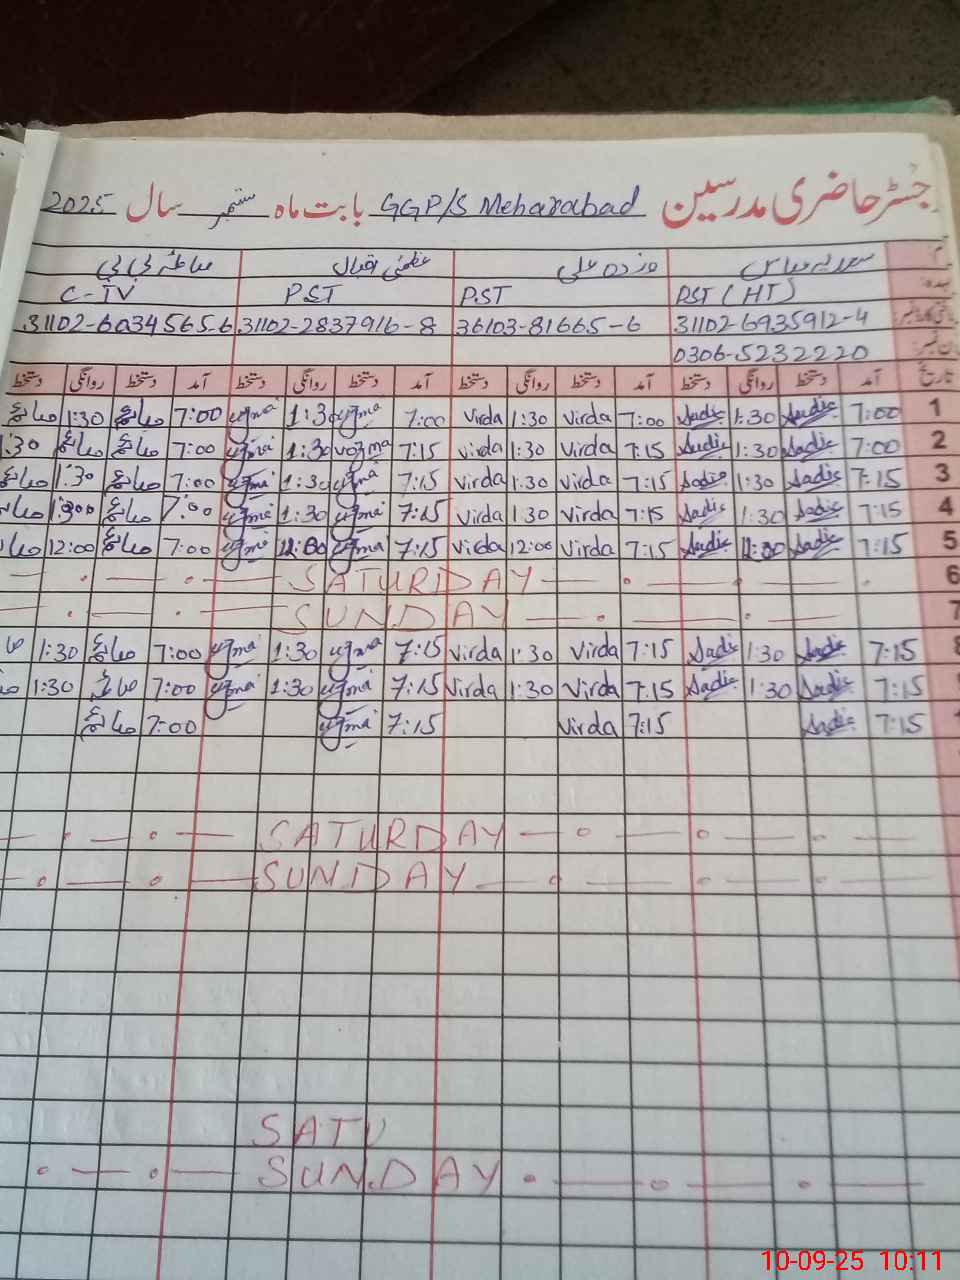 رجسٹر حاضری مدرسین GGP/S Meharabad بابت ماہ ستمبر سال 2025
عظمیٰ اقبال
PST (HT) PST PST C-IV
31102-6935912-4 36103-81665-6 31102-2837916-8 31102-6034565-6
0306-5232220
تاریخ آمد دستخط روانگی دستخط آمد دستخط روانگی دستخط آمد دستخط روانگی دستخط آمد دستخط روانگی دستخط
1 7:00 Sadie 1:30 Sadie 7:00 Virda 1:30 Virda 7:00 uzma 1:30 uzma 7:00 1:30
2 7:00 Sadie 1:30 Sadie 7:15 Virda 1:30 Virda 7:15 uzma 1:30 uzma 7:00 1:30
3 7:15 Sadie 1:30 Sadie 7:15 Virda 1:30 Virda 7:15 uzma 1:30 uzma 7:00 1:30
4 7:15 Sadie 1:30 Sadie 7:15 Virda 1:30 Virda 7:15 uzma 1:30 uzma 7:00
5 7:15 Sadie 12:00 Sadie 7:15 Virda 12:00 Virda 7:15 uzma 12:00 uzma 7:00 12:00
6 SATURDAY
7 SUNDAY
8 7:15 Sadie 1:30 Sadie 7:15 Virda 1:30 Virda 7:15 uzma 1:30 uzma 7:00 1:30
7:15 Sadie 1:30 Sadie 7:15 Virda 1:30 Virda 7:15 uzma 1:30 uzma 7:00 1:30
7:15 Sadie 7:15 Virda 7:15 uzma 7:00
SATURDAY
SUNDAY
SATU
SUNDAY
10-09-25 10:11